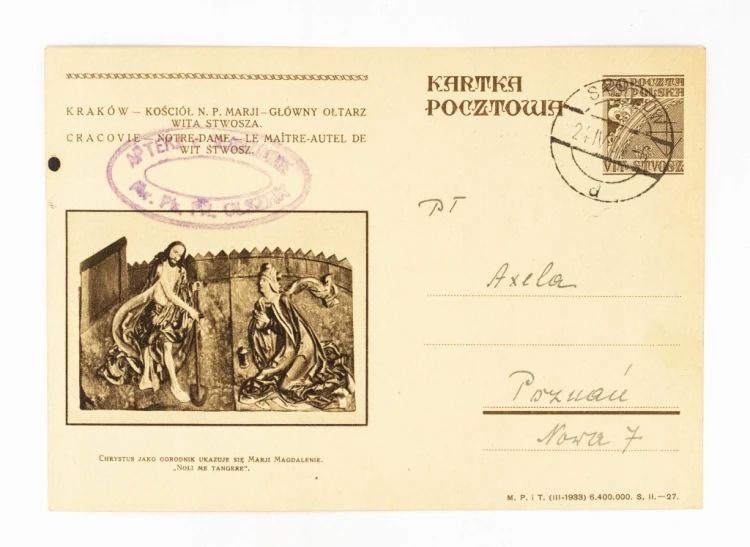 KRAKÓW — KOŚCIÓŁ N. P. MARJI — GŁÓWNY OŁTARZ
WITA STWOSZA.
CRACOVIE — NOTRE-DAME — LE MAÎTRE-AUTEL DE
WIT STWOSZ.
CHRYSTUS JAKO OGRODNIK UKAZUJE SIĘ MARJI MAGDALENIE.
„NOLI ME TANGERE".
KARTKA
POCZTOWA
POCZTA
POLSKA
WIT STWOSZ
d
PT
Axela
Poznań
Nowa 7
M. P. i T. (III-1933) 6.400.000. S. II.—27.